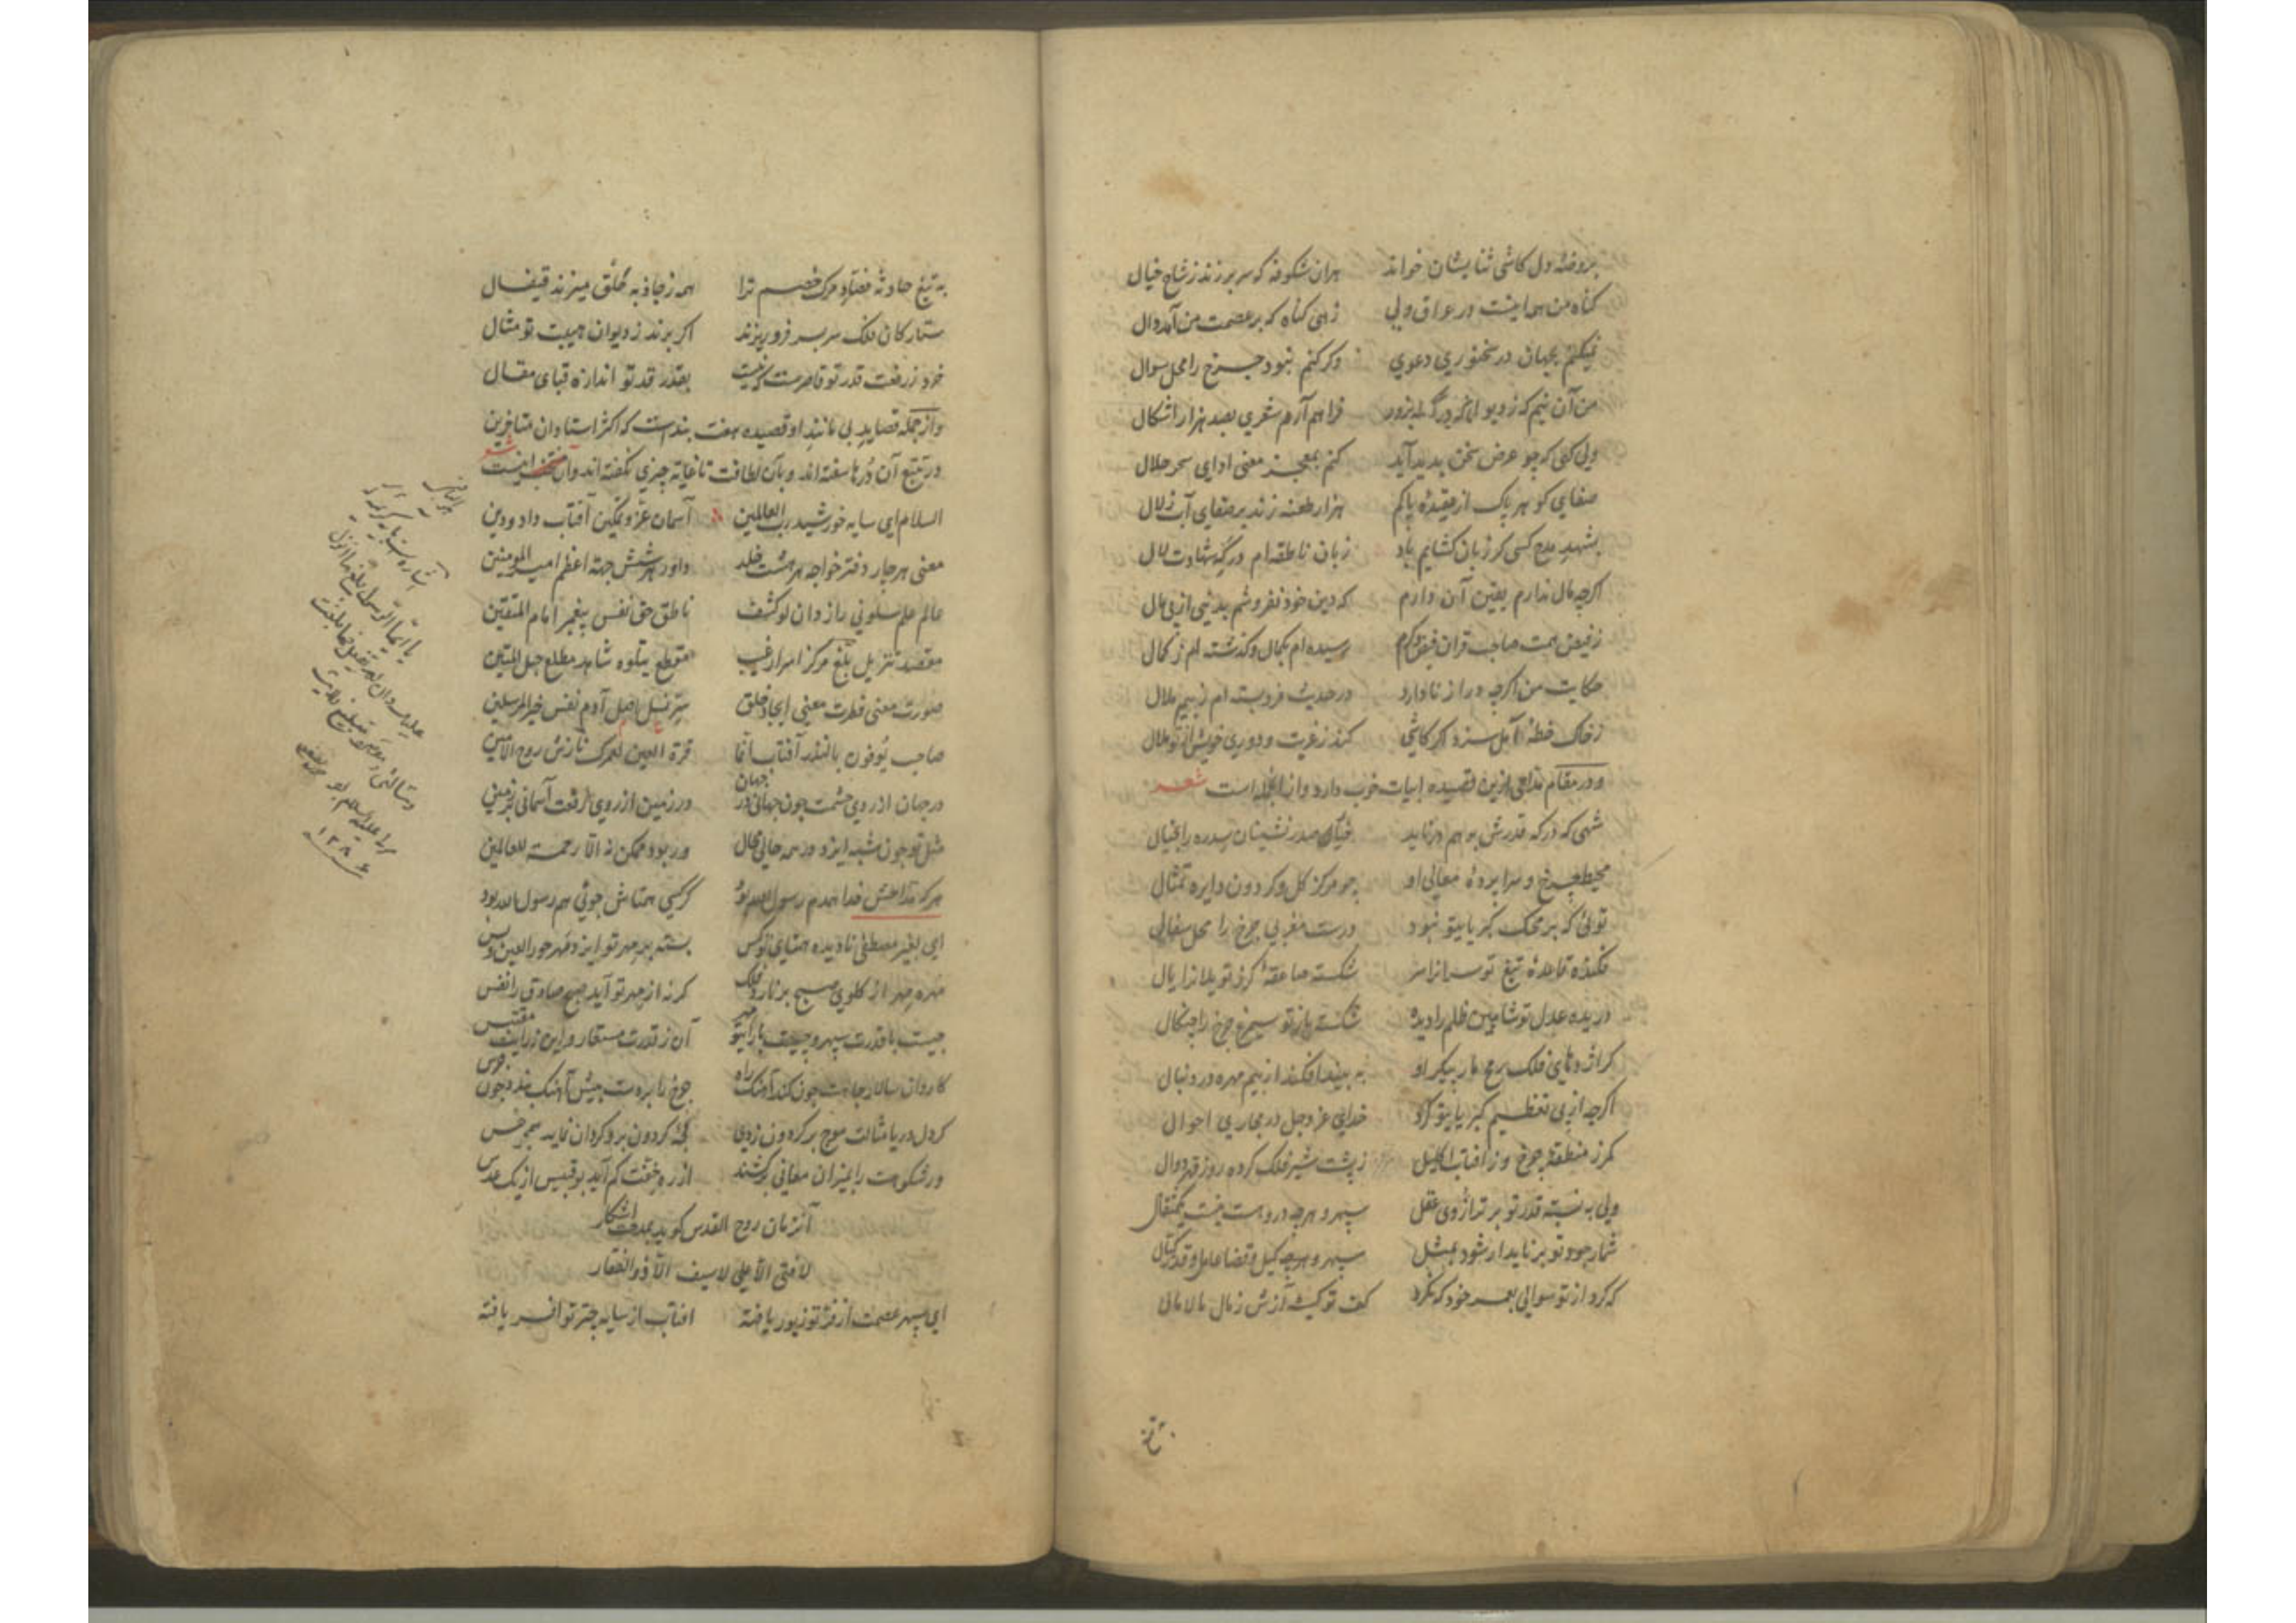 بروضهٔ دل کاشی ثنایشان خواند هران شکوفه که سر برزند ز شاخ خیال
کناه من همه اینست در عراق ولی زهی کناه که بر عصمت من آمد دال
نمیکنم بجهان در سخنوری دعوی وکر کنم نبود چرخ را محل سوال
من آن نیم که ز دیوان فراهم آرم شعری بصد هزار اشکال
ولی کهی که چو عرض سخن پدید آید کنم بمعجز معنی ادای سحر حلال
صفایی کو هر پاک از عقیدهٔ پاکم هزار طعنه زند بر صفای آب زلال
بشهد مدح کسی کر زبان کشایم باد زبان ناطقه ام در که شهادت لال
اکرچه مال ندارم یقین آن دارم که دین خود نفروشم بدنیی از پی مال
ز فیض همت صاحب قران رسیده ام بکمال و کذشته ام ز کمال
حکایت من اکرچه دراز نا دارد در حدیث فرو بسته ام ز بیم ملال
ز خاک خطهٔ آمل سزد اکر کاشی کند ز غربت و دوری خویش
و در مقام تداعی ازین قصیده ابیات خوب دارد و از آنجمله است شعر
شهی که درکه قدرش به وهم در ناید خیال صدر نشینان سدره را بخیال
محیط چرخ و سراپردهٔ معالی او چو مرکز کل و کردون دایره تمثال
توئی که بر محک کبریایتو نبود درست مغربی چرخ را محل سفالی
فکنده قاعدهٔ تیغ تو سر از شکسته صاعقهٔ کرز تو یلانرا یال
دریده عدل تو شاهین ظلم را دیده شکسته باز تو سیمرغ چرخ را چنکال
کر اژدهای فلک رمح مار پیکر او به بیند افکند از بیم مهره در دنبال
اکرچه از پی تعظیم کبریایتو کرد خدای عز و جل در مجاری احوال
کمر ز منطقهٔ چرخ و ز افتاب اکلیل ز پشت شیر فلک کرده روز قهر دوال
ولی به نسبت قدر تو بر ترازوی عقل سپهر و هرچه دروست نیست یکمثقال
شمار جود تو بر ناید ار شود بمثل سپهر و هرچه کیل و قضا عامل و قدر کیال
که کرد از تو سوالی بعمر خود که نکرد کف تو کیسه آزش ز مال مالامال
به تیغ
به تیغ حادثه فصاد مرک خصم ترا همه ز جاذبه خلق میزند قیفال
ستارکان فلک سر بسر فرو ریزند اکر برند ز دیوان هیبت تو مثال
خرد ز رفعت قدر تو قاصرست بقدر قد تو اندازه قبای مقال
و از جمله قصاید بی مانند او قصیده هفت بندست که اکثر استادان متاخرین
در تتبع آن درها سفته اند و بآن لطافت تا غایة چیزی نکفته اند و آن اینست شعر
السلام ای سایه خورشید رب العالمین آسمان عز و تمکین آفتاب داد و دین
معنی هر چار دفتر خواجه هر هشت خلد داور هر شش جهة اعظم امیر المومنین
عالم علم سلونی رازدان لو کشف ناطق حق نفس پیغمبر امام المتقین
مقصد تنزیل بلغ مرکز اسرار غیب مقطع یتلوه شاهد مطلع حبل المتین
صورت معنی فطرت معنی ایجاد خلق سر نسل اصل آدم نفس خیر المرسلین
صاحب یوفون بالنذر آفتاب انما قرة العین لعمرک نازش روح الامین
در جهان از روی حشمت چون جهانی در جهان در زمین از روی رفعت آسمانی بر زمین
مثل تو چون شبه ایزد در همه حالی محال ور بود ممکن نه الا رحمة للعالمین
هر که مداحش خدا همدم رسول الله بود کر کسی همتاش جوئی هم رسول الله بود
ای بغیر مصطفی نا دیده همتای تو کس بسته بر مهر تو ایزد مهر حور العین و بس
مهره مهر از کلوی صبح بر نارد فلک کر نه از مهر تو آید صبح صادق را نفس
چیست با قدرت سپهر و چیست با رایتو مهر آن ز قدرت مستعار و این ز رایت مقتبس
کاروان سالار جاهت چون کند آهنک راه چرخ را بر دست پیش آهنک بندد چون جرس
کر دل دریا مثالت موج بر کردون زدی لجهٔ کردون بر و کردان نماید همچو خس
ور شکوهت را بمیزان معانی برکشند از ره خفت کم آید بوقبیس از یک عدس
آنزمان روح القدس کوید بمدحت اشکار
لا فتی الا علی لا سیف الا ذو الفقار
ای سپهر عصمت از فر تو زیور یافته افتاب از سایه چتر تو افسر یافته
اشاره
یا ایها الرسول بلغ ما انزل
۱۲۸۶